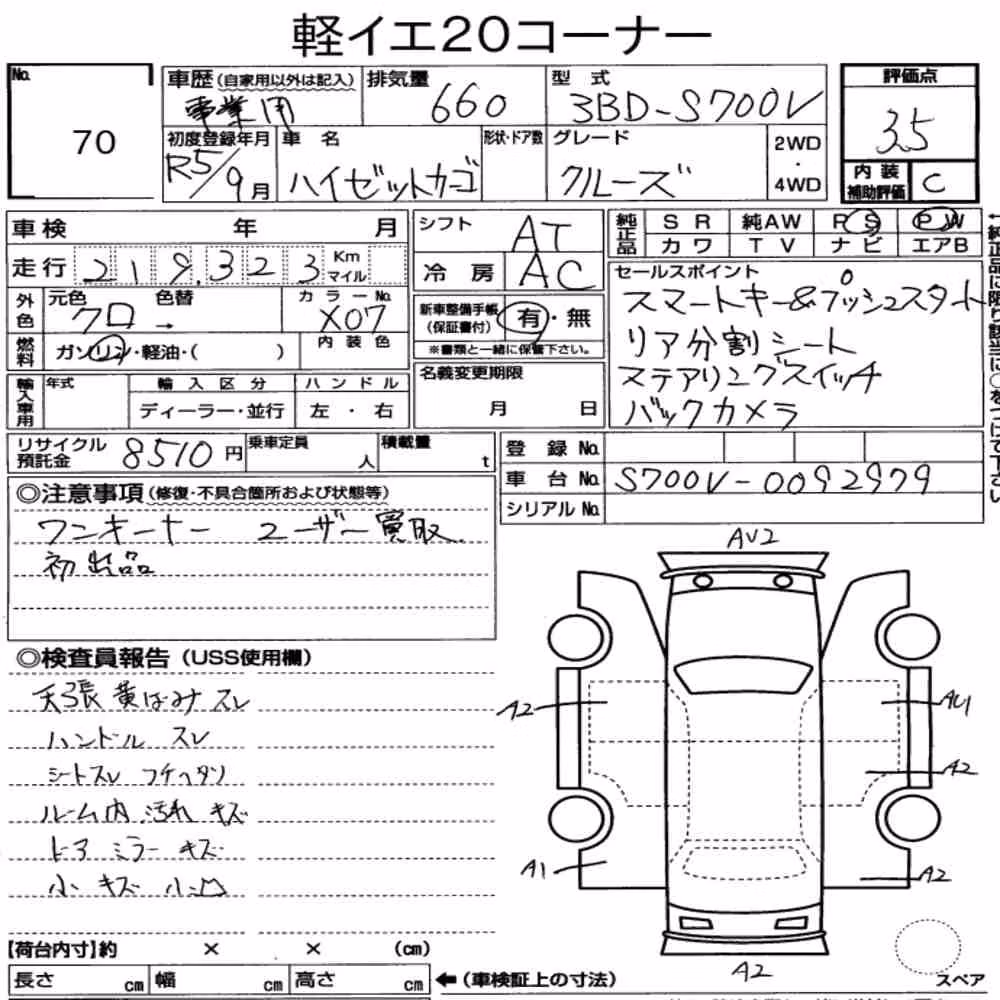 軽イエ20コーナー
No.
70
車歴(自家用以外は記入)
事業用
排気量
660
型式
3BD-S700V
評価点
3.5
初度登録年月
R5/9月
車名
ハイゼットカーゴ
形状・ドア数
グレード
クルーズ
2WD
・
4WD
内装
補助評価
C
車検 年 月
走行 219,323 Km
マイル
シフト
AT
冷房
AC
純正品
SR 純AW PS PW
カワ TV ナビ エアB
←純正品に限り該当に○をつけて下さい
外色
元色 色替
クロ →
カラーNo.
X07
内装色
燃料
ガソリン・軽油・( )
新車整備手帳
(保証書付)
有・無
※書類と一緒に保管下さい。
セールスポイント
スマートキー&プッシュスタート
リア分割シート
ステアリングスイッチ
バックカメラ
輸入車用
年式
輸入区分
ディーラー・並行
ハンドル
左・右
名義変更期限
月 日
リサイクル
預託金
8510円
乗車定員
人
積載量
t
登録No.
車台No.
S700V-0092979
シリアルNo.
◎注意事項(修復・不具合箇所および状態等)
ワンオーナー ユーザー買取
初出品
◎検査員報告(USS使用欄)
天張 黄ばみ スレ
ハンドル スレ
シートスレ フチヘタリ
ルーム内 汚れ キズ
ドア ミラー キズ
小キズ 小凹
AU2
A2
AU1
A2
A1
A2
A2
スペア
【荷台内寸】約 × × (cm)
長さ cm 幅 cm 高さ cm ←(車検証上の寸法)